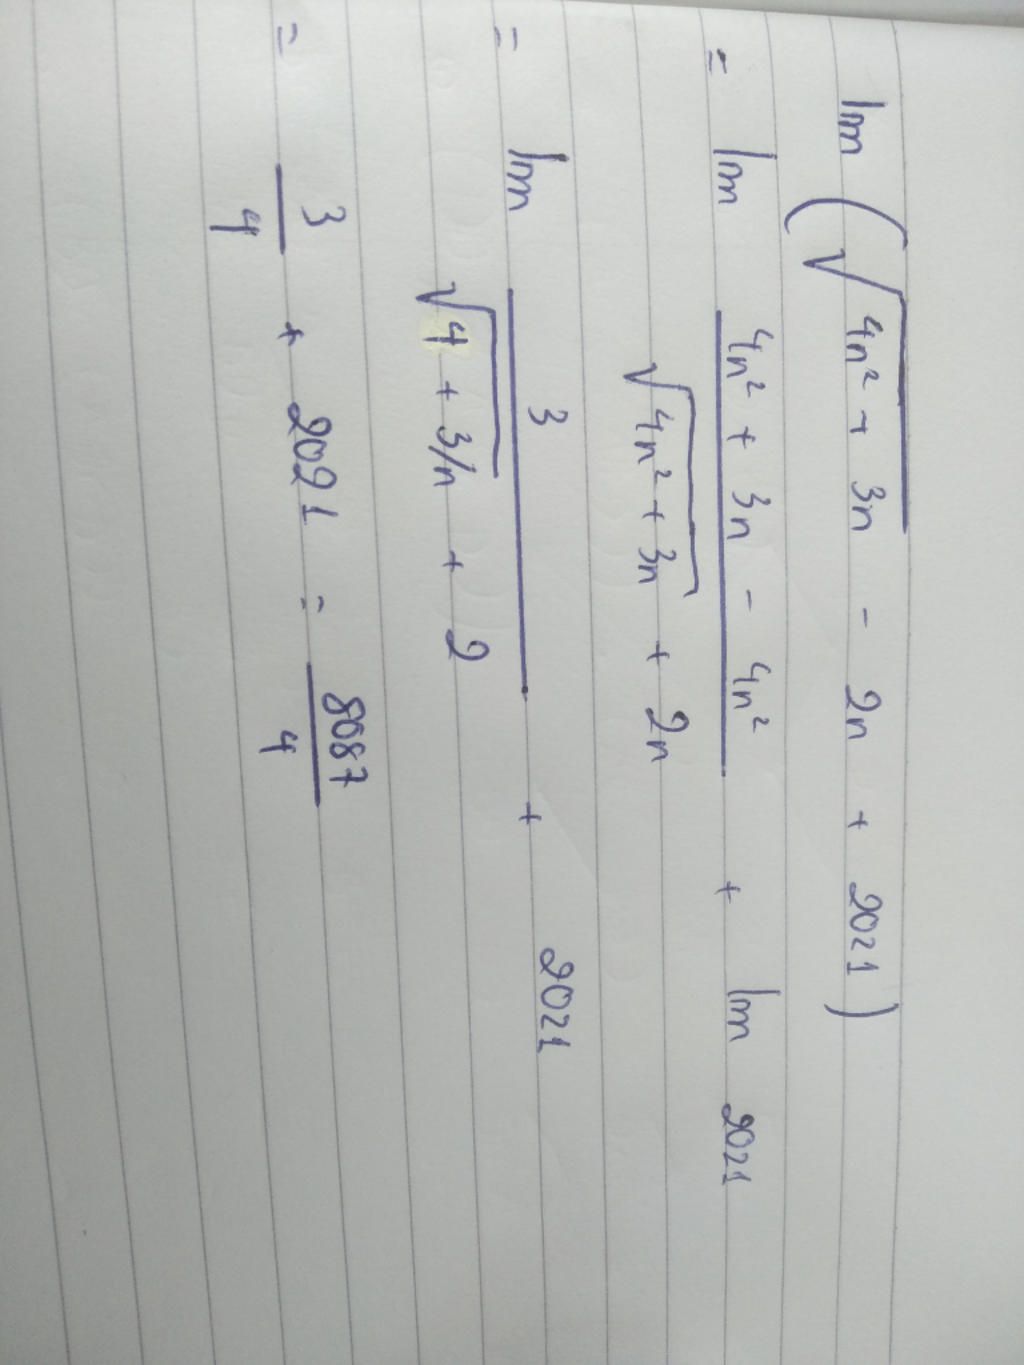 lim ( √(4n² + 3n) - 2n + 2021 )
= lim (4n² + 3n - 4n²) / (√(4n² + 3n) + 2n) + lim 2021
= lim 3 / (√(4 + 3/n) + 2) + 2021
= 3/4 + 2021 = 8087/4